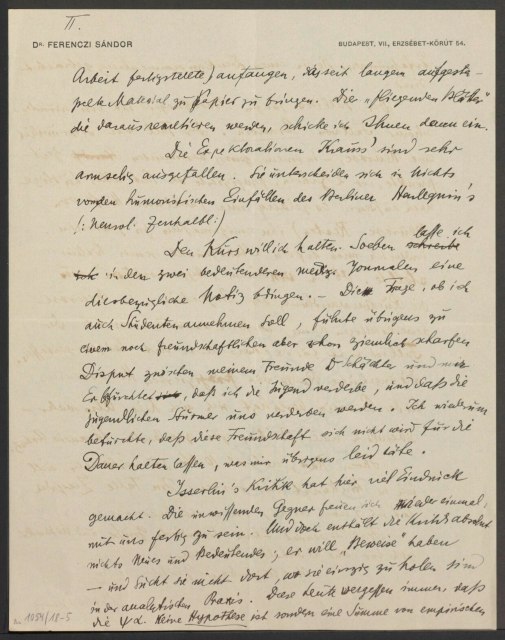 II.
Dr. FERENCZI SÁNDOR
BUDAPEST, VII., ERZSÉBET-KÖRÚT 54.
Arbeit fertigstellte) anfangen, das seit langem aufgesta-
pelte Material zu Papier zu bringen. Die „fliegenden Blätter"
die daraus resultieren werden, schicke ich Ihnen dann ein.
Die Expektorationen Kraus' sind sehr
armselig ausgefallen. Sie unterscheiden sich in Nichts
von den humoristischen Einfällen des Berliner Harlequin's
(: Neurol. Zentralbl :)
Den Kurs will ich halten. Soeben lasse ich
in den zwei bedeutenderen mediz. Journalen eine
diesbezügliche Notiz bringen. – Die Frage, ob ich
auch Studenten annehmen soll, führte übrigens zu
einem noch freundschaftlichen aber schon ziemlich scharfen
Disput zwischen meinem Freunde Dr Schächter und mir
Er befürchtet, daß ich die Jugend verderbe, und daß die
jugendlichen Stürmer uns verderben werden. Ich wiederum
befürchte, daß diese Freundschaft sich nicht wird für die
Dauer halten lassen, was mir übrigens leid täte.
Isserlin's Kritik hat hier viel Eindruck
gemacht. Die unwissenden Gegner freuen sich wieder einmal,
mit uns fertig zu sein. Und doch enthält die Kritik absolut
nichts Neues und Bedeutendes; er will „Beweise" haben
– und sucht sie nicht dort, wo sie einzig zu holen sind
in der analytischen Praxis. Diese Leute vergessen immer, daß
die ΨA. keine Hypothese ist sondern eine Summe von empirischen
1054/18-5